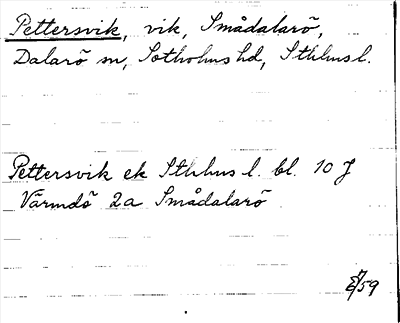 Pettersvik, vik, Smådalarö,
Dalarö sn, Sotholms hd, Sthlms l.
Pettersvik ek Sthlms l. bl. 10 J
Värmdö 2a Smådalarö
/59